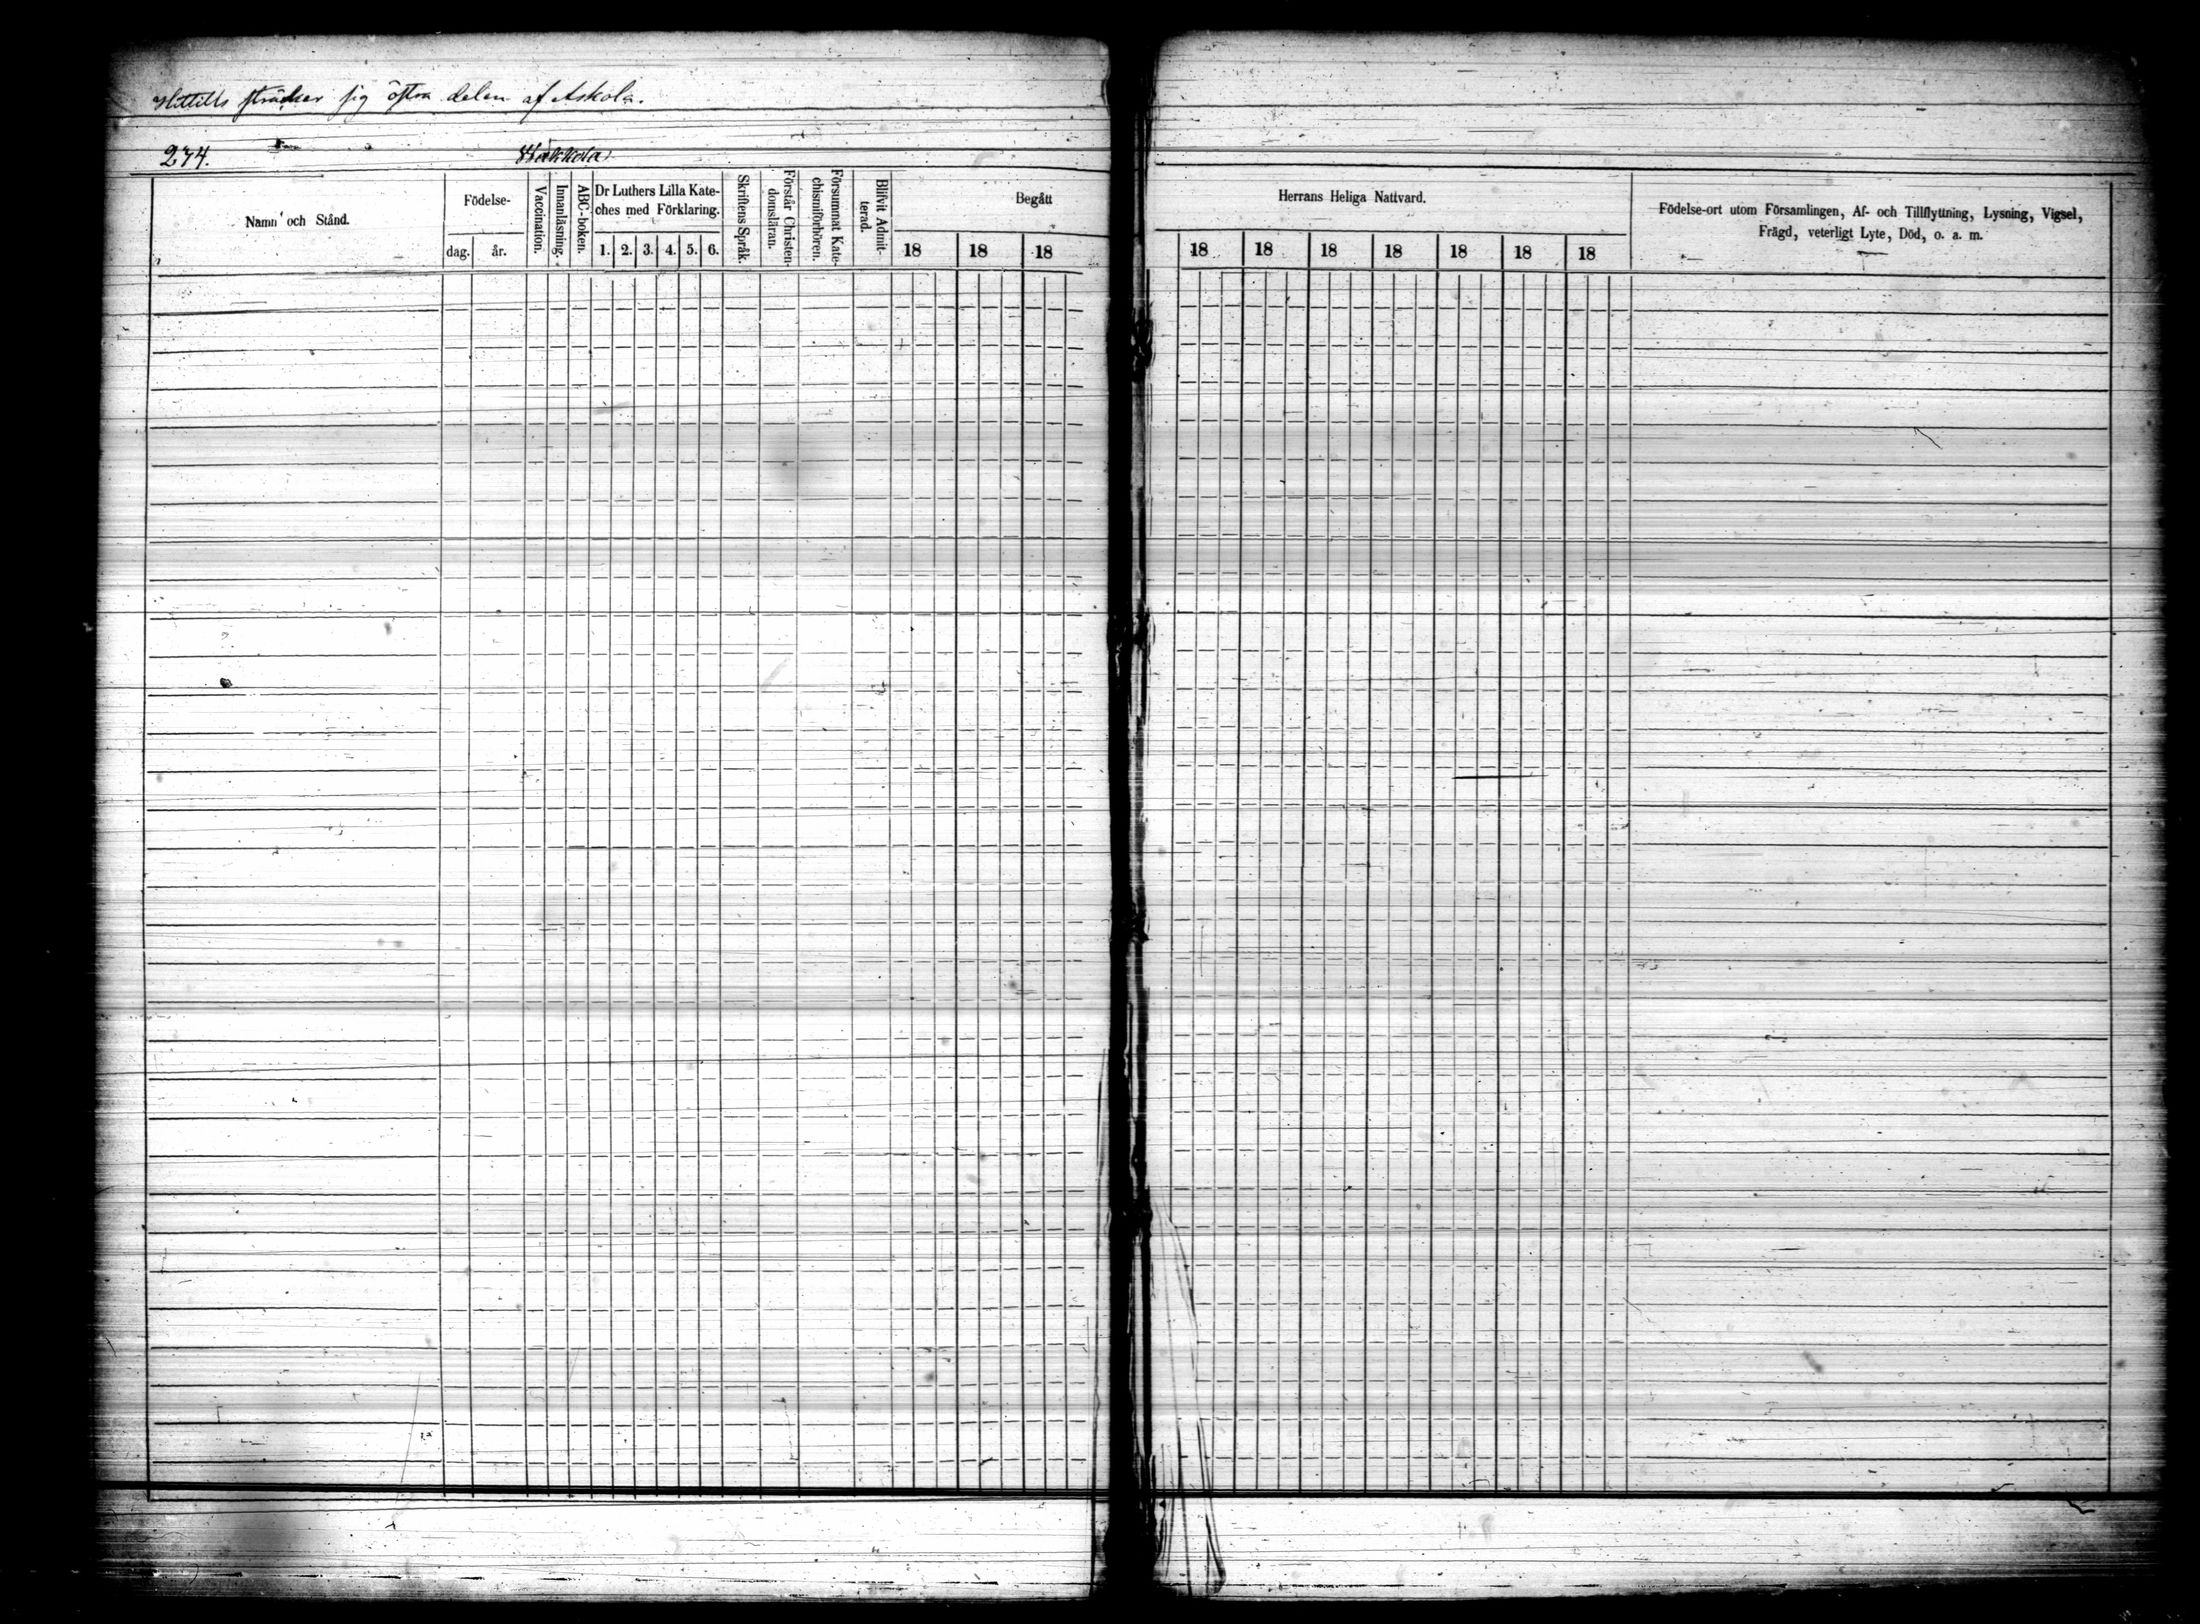 Hittills sträcker sig östra delen af Askola.
274. Wakkola
Namn och Stånd.
Födelse-
dag. år.
Vaccination.
Innanläsning.
ABC-boken.
Dr Luthers Lilla Kate-
ches med Förklaring.
1. 2. 3. 4. 5. 6.
Skriftens Språk.
Förstår Christen-
domsläran.
Försummat Kate-
chismiförhören.
Blifvit Admit-
terad.
Begått
18 18 18
Herrans Heliga Nattvard.
18 18 18 18 18 18 18
Födelse-ort utom Församlingen, Af- och Tillflyttning, Lysning, Vigsel,
Frägd, veterligt Lyte, Död, o. a. m.